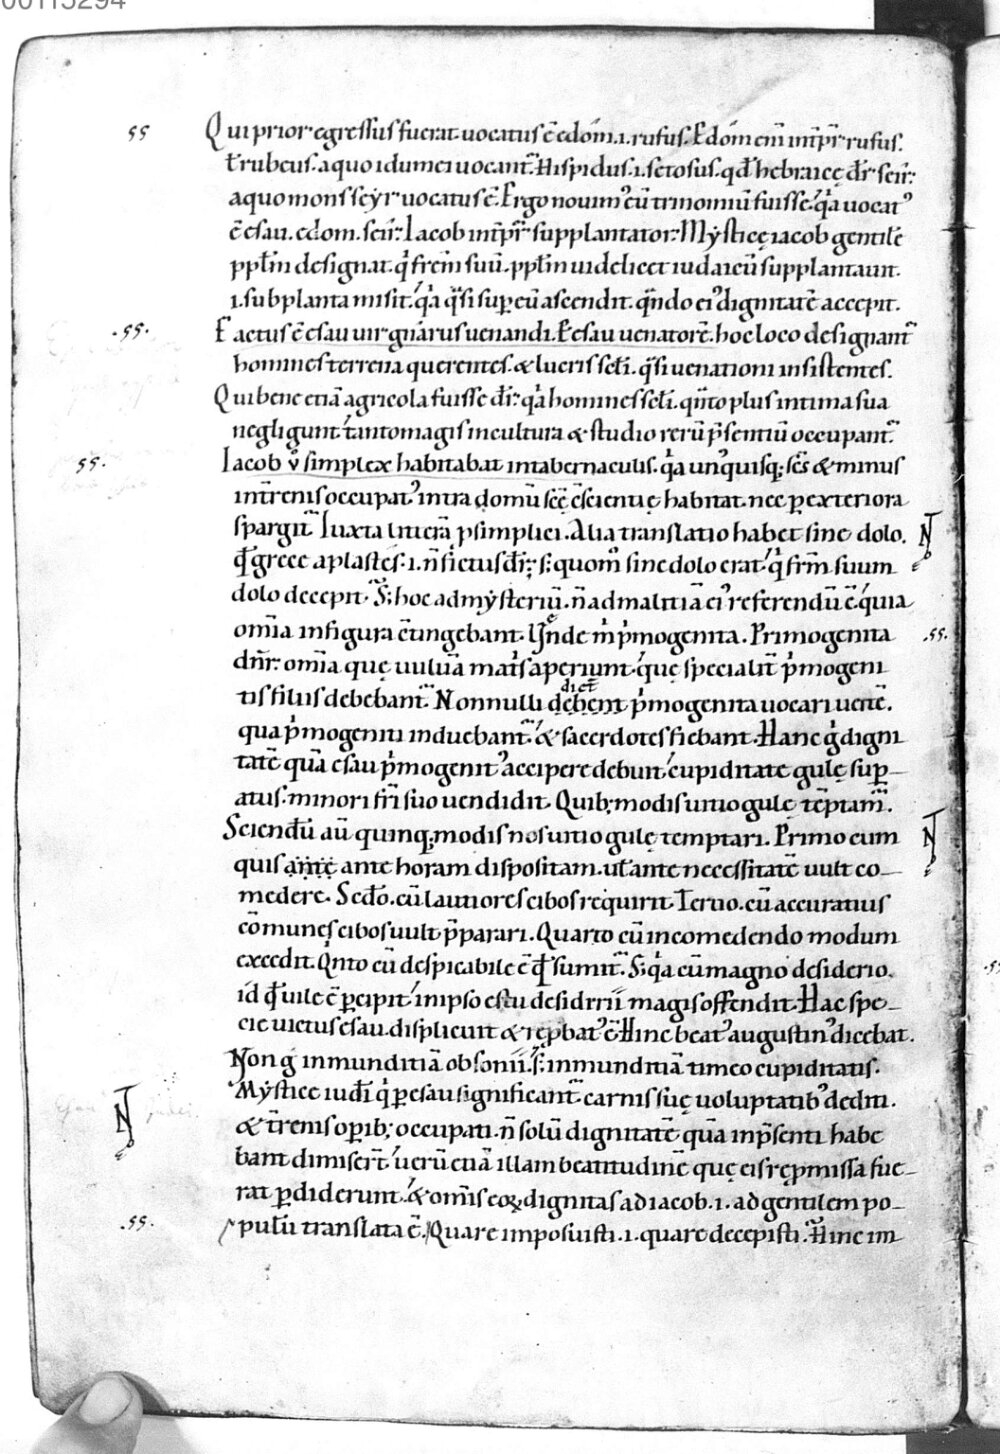 00115294
55 Qui prior egressus fuerat uocatus ē edóm .i. rufus. Edóm eni͞ int͞pr rufus.
ł rubeus. a quo idumei uocant᷑. Hispidus .i. setosus. qđ hebraice đr seir:
a quo mons seẏr uocatus ē. Ergo nouim᷒ eū trinomiū fuisse. q͛a uocat᷒
ē esau. edom. seir: Iacob int͞pr supplantator: Mẏstice iacob gentilē
pp̄lm designat. q͛ fr̄em suū. pp̄lm uidelicet iudaicū supplantauit.
.i. sub planta misit. q͛a q̄si super eū ascendit. q̄ndo ei᷒ dignitatē accepit.
.55. Factus ē esau uir gnarus uenandi. P esau uenatorē. hoc loco designant᷑
homines terrena querentes. & lucris sčli. q̄si uenationi insistentes.
Qui bene etiā agricola fuisse đr: q͛a homines sčli. q̄nto plus intima sua
negligunt tanto magis in cultura & studio rerū p̄sentiū occupant᷑.
55. Iacob v̊ simplex habitabat in tabernaculis. q͛a un᷒quisq; sc̄s & minus
in t̄renis occupat᷒ intra domū sčę c̄scientię habitat. nec per exteriora
spargit᷑ Iuxta litterā p simplici. Alia translatio habet sine dolo. N
q̄ grece aplastes .i. n̄ fictus đr; s; quom̊ sine dolo erat. q͛ fr̄m suum
dolo decepit. S; hoc ad mẏsteriū. n̄ ad malitiā ei᷒ referendū ē. quia
om̄ia in figura c̄tingebant. Unde m͛ p͛mogenita. Primogenita .55.
dn̄r: om̄ia que uuluā mat͛s aperiunt. que specialit̄ p͛mogeni
tis filiis debebant᷑. Nonnulli debent p͛mogenita uocari uestē.
dict̄
qua p͛mogeniti induebant᷑. & sacerdotes fiebant. Hanc ḡ digni
tatē quā esau p͛mogenit᷒ accipere debuit cupiditate gulę sup̱
atus. minori fr̄i suo uendidit. Quib; modis uitio gulę tēptam᷑.
Sciendū aū quinq; modis nos uitio gulę temptari. Primo cum N
quis ante ante horam dispositam. uł ante necessitatē uult co
medere. Secđo. cū lautiores cibos requirit Tertio. cū accuratius
cōmunes cibos uult p̄parari. Quarto cū in comedendo modum
excedit. Qinto cū despicabile ē q̄ sumit᷑. S; q͛a cū magno desiderio.
id q̄ uile ē percipit in ipso estu desidrii magis offendit. Hac spe
cie uictus esau. displicuit & rep̱bat᷒ ē. Hinc beat᷒ augustin᷒ dicebat.
Non ḡ inmunditiā obsonii. s; inmunditiā timeo cupiditatis.
N Mẏstice iuđi q͛ per esau significant᷑ carnis suę uoluptatib᷒ dediti.
& t̄renis operib; occupati. n̄ solū dignitatē quā in p̄senti habe
bant dimiser̄t uerū etiā illam beatitudinē que eis rep̱missa fue
rat perdiderunt. & omīs eoꝝ dignitas ad iacob .i. ad gentilem po
.55. pulū translata ē. Quare imposuisti .i. quare decepisti. Hinc im